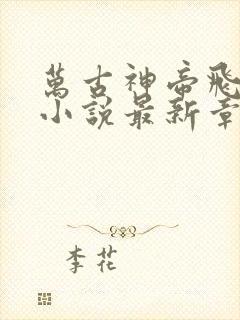 萬古神帝飛
小說最新章
李花